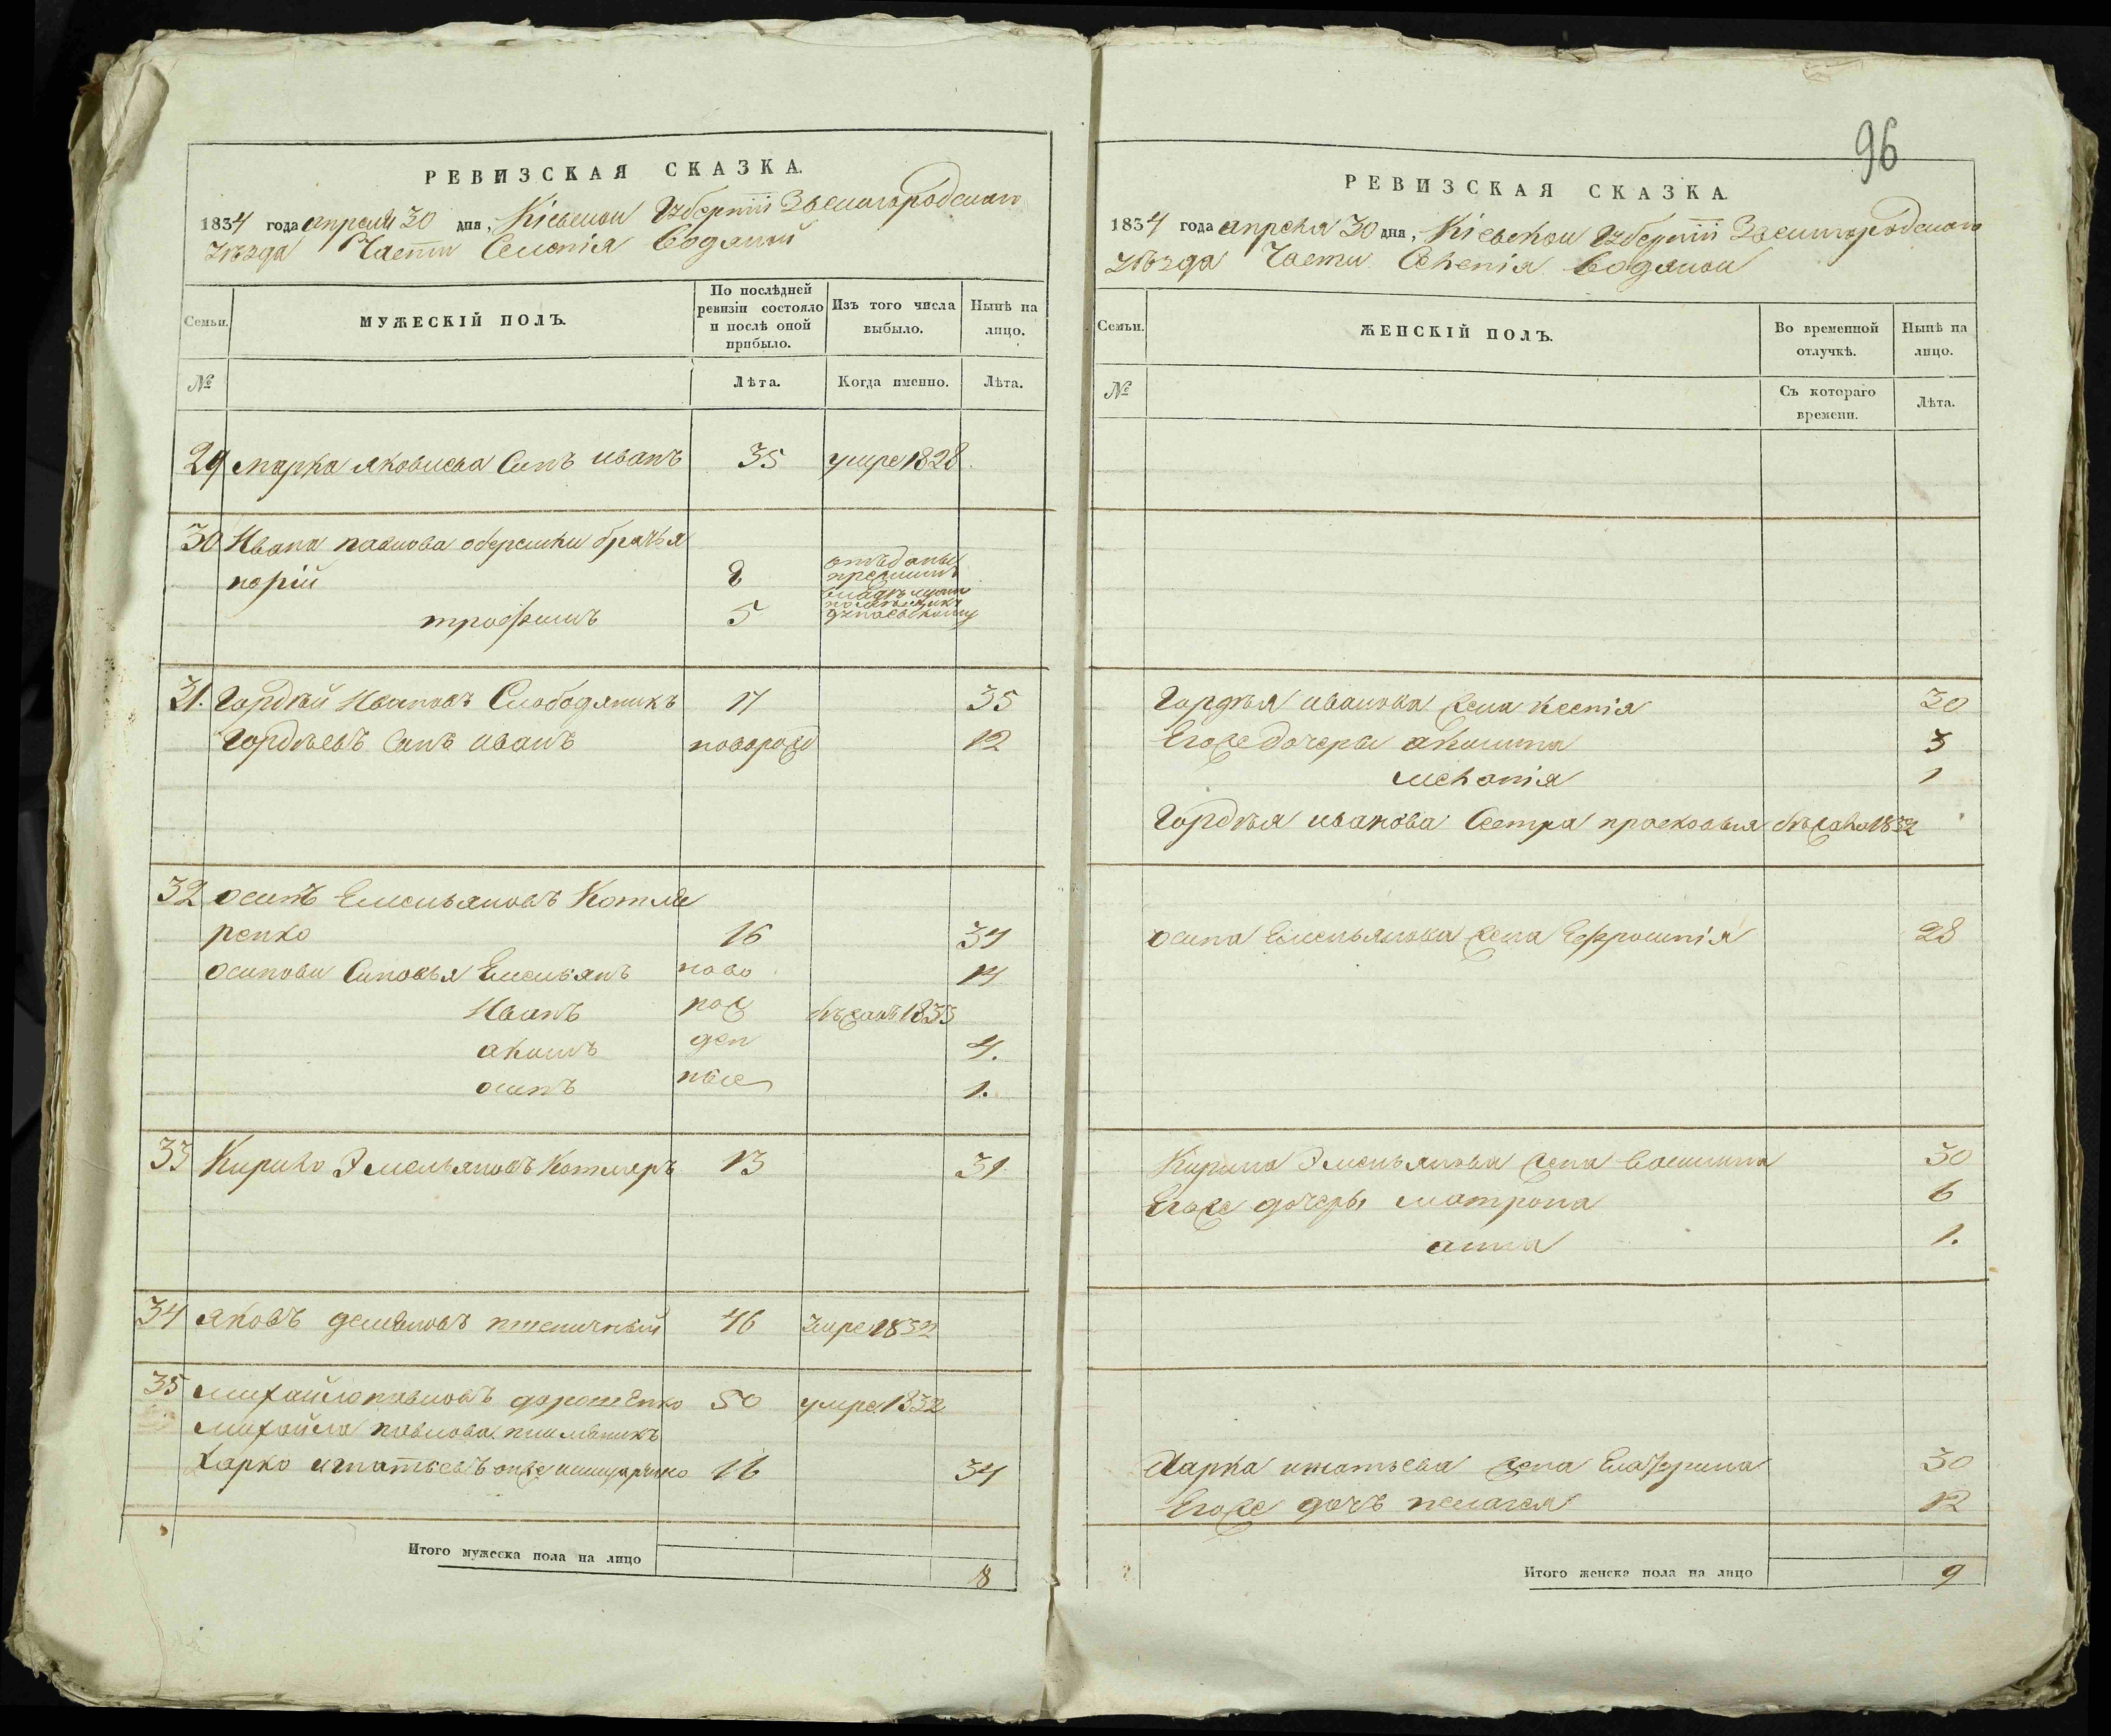 РЕВИЗСКАЯ СКАЗКА.
1834 года апреля 30 дня, Кіевской Губерніи Звенигородскаго
уѣзда Части Селенія Водяной
Семьи.
МУЖЕСКІЙ ПОЛЪ.
По послѣдней ревизіи состояло и послѣ оной прибыло.
Изъ того числа выбыло.
Нынѣ на лицо.
№
Лѣта.
Когда именно.
Лѣта.
29 марка яковлева Синъ иванъ 35 умре 1828
30 Ивана павлова оберемки братья
порій 8
трофимъ 5
отъданы
31. Гордѣй Ивановъ Слободяникъ 17 35
Гордѣевъ Синъ иванъ поворож 12
32 осипъ Емельяновъ Котля
ренко 16 34
осиповы Синовья Емельянъ ново 14
Иванъ рож бѣжалъ 1833
акимъ ден 4.
осипъ ные 1.
33 Кирило Эмельяновъ Котляръ 13 31
34 яковъ демяновъ пшеничный 46 умре 1832
35 михайло павловъ дорошенко 50 умре 1832
михайла павлова племяникъ
Харко игнатьевъ 16 34
Итого мужеска пола на лицо 8
96
РЕВИЗСКАЯ СКАЗКА.
1834 года апреля 30 дня, Кіевской Губерніи Звенигородскаго
уѣзда Части Селенія Водяной
Семьи.
ЖЕНСКІЙ ПОЛЪ.
Во временной отлучкѣ.
Нынѣ на лицо.
№
Съ котораго времени.
Лѣта.
Гордѣя иванова жена ксенія 30
Егоже дочеры акилина 3
меланія 1
Гордѣя иванова Сестра прасковья бѣжала 1832
осипа Емельянова жена Ефросинія 28
Кирила Эмельянова жена Василина 30
Егоже дочеры матрона 6
анна 1.
Харка игнатьева жена Екатерина 30
Егоже дочъ пелагея 12
Итого женска пола на лицо 9